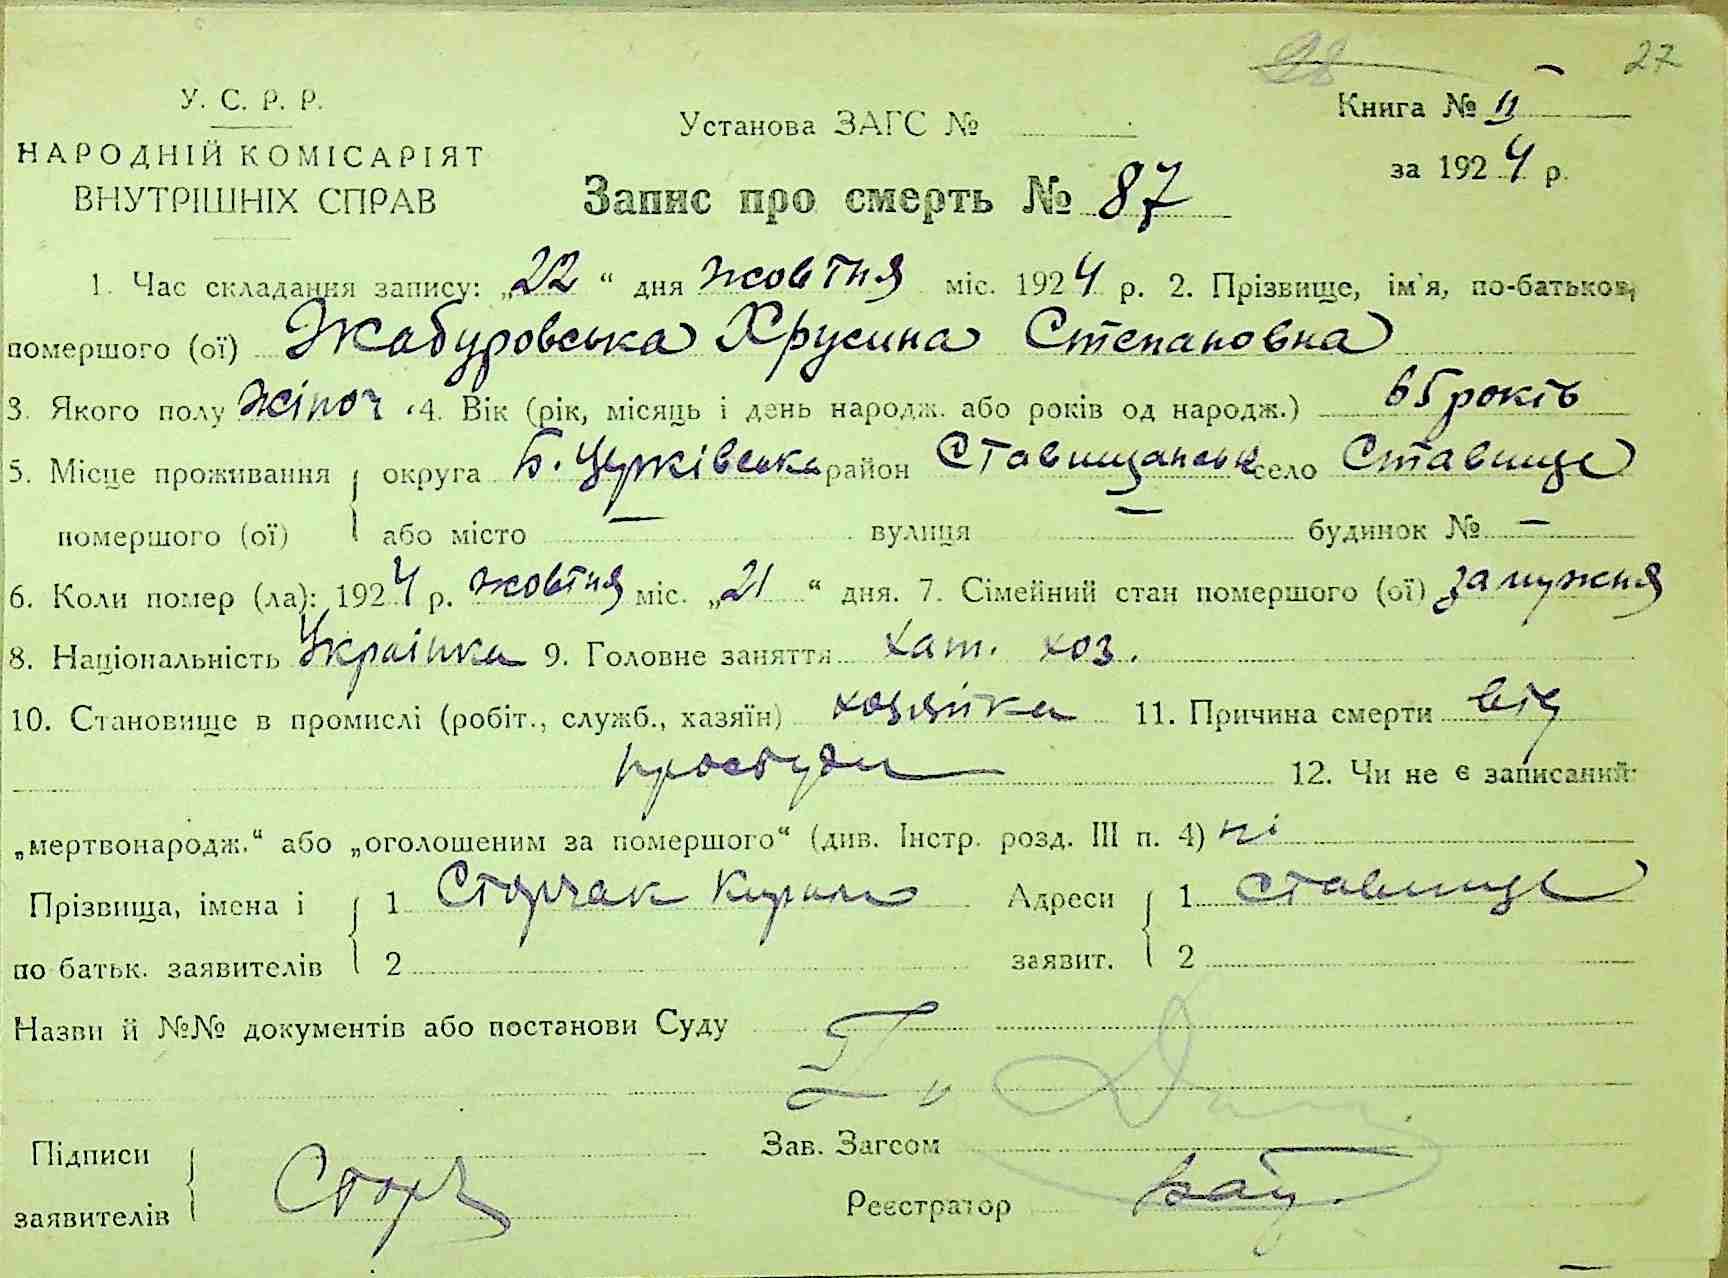 28 27
У. С. Р. Р.
НАРОДНІЙ КОМІСАРІЯТ
ВНУТРІШНІХ СПРАВ
Установа ЗАГС №
Книга № II
за 1924 р.
Запис про смерть № 87
1. Час складання запису: „22“ дня жовтня міс. 1924 р. 2. Прізвище, ім'я, по-батькові
помершого (ої) Жабуровська Хрусина Степановна
3. Якого полу жіноч. 4. Вік (рік, місяць і день народж. або років од народж.) 65 років
5. Місце проживання округа Б. Церківська район Ставищанськ село Ставище
помершого (ої) або місто — вулиця — будинок № —
6. Коли помер (ла): 1924 р. жовтня міс. „21“ дня. 7. Сімейний стан помершого (ої) замужня
8. Національність Українка 9. Головне заняття хат. хоз.
10. Становище в промислі (робіт., служб., хазяїн) хозяйка 11. Причина смерти від
простуди 12. Чи не є записаний
„мертвонародж.“ або „оголошеним за помершого“ (див. Інстр. розд. III п. 4) ні
Прізвища, імена і 1 Сторчак Кирило Адреси 1 Ставище
по батьк. заявителів 2 заявит. 2
Назви й №№ документів або постанови Суду
Підписи Зав. Загсом
заявителів Реєстратор